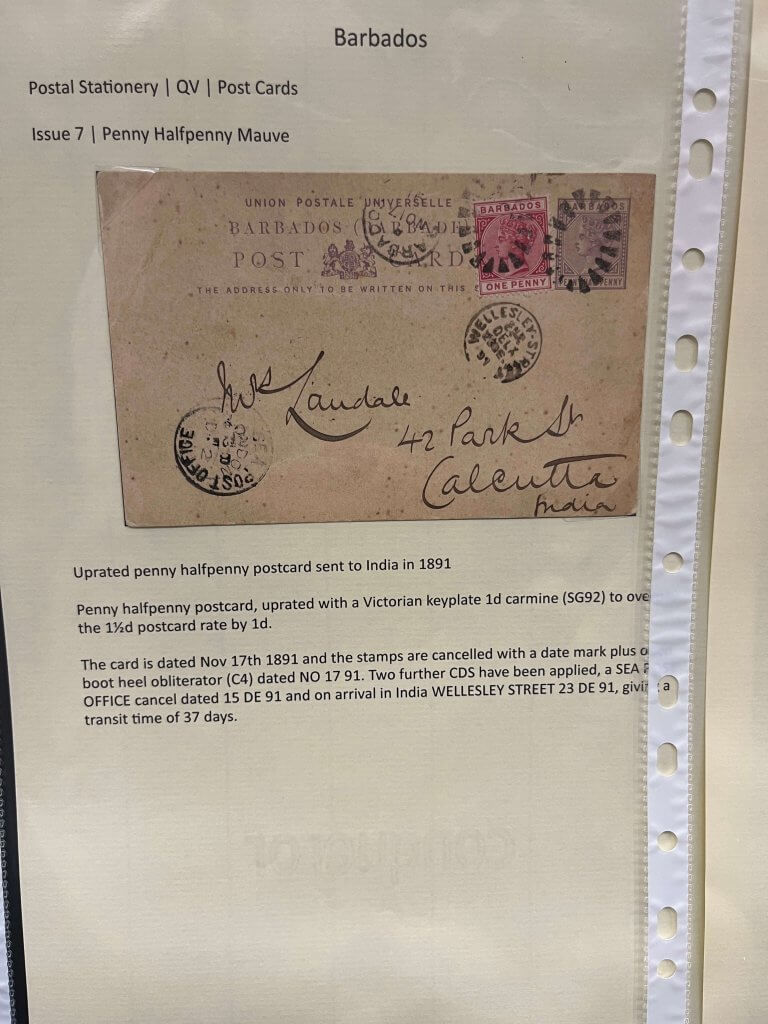 Barbados
Postal Stationery | QV | Post Cards
Issue 7 | Penny Halfpenny Mauve
UNION POSTALE UNIVERSELLE
BARBADOS
POST CARD
THE ADDRESS ONLY TO BE WRITTEN ON THIS
BARBADOS
ONE PENNY
BARBADOS
PENNY
NO 17
WELLESLEY-STREET
Mrs Landale
42 Park St
Calcutta
India
SEA POST OFFICE
Uprated penny halfpenny postcard sent to India in 1891
Penny halfpenny postcard, uprated with a Victorian keyplate 1d carmine (SG92) to ove
the 1½d postcard rate by 1d.
The card is dated Nov 17th 1891 and the stamps are cancelled with a date mark plus o
boot heel obliterator (C4) dated NO 17 91. Two further CDS have been applied, a SEA P
OFFICE cancel dated 15 DE 91 and on arrival in India WELLESLEY STREET 23 DE 91, giving a
transit time of 37 days.